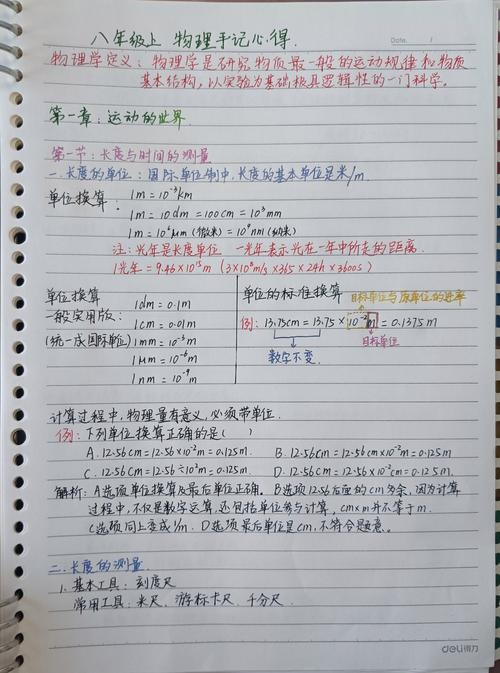 八年级上 物理手记心得.
Date. /
物理学定义：物理学是研究物质最一般的运动规律和物质
基本结构，以实验为基础极具逻辑性的一门科学。
第一章：运动的世界
第一节：长度与时间的测量
一.长度的单位：国际单位制中，长度的基本单位是米/m.
单位换算：
1m=10⁻³km
1m=10dm=100cm=10³mm
1m=10⁶μm(微米)=10⁹nm(纳米)
注：光年是长度单位 一光年表示光在一年中所走的距离.
1光年=9.46×10¹⁵m (3×10⁸m/s×365×24h×3600s)
单位换算
一般实用版：
(统一成国际单位)
1dm=0.1m
1cm=0.01m
1mm=10⁻³m
1μm=10⁻⁶m
1nm=10⁻⁹m
单位的标准换算
目标单位与原单位的进率
例：13.75cm=13.75×10⁻²m=0.1375m
数字不变.
目标单位
计算过程中，物理量有意义，必须带单位.
例：下列单位换算正确的是( )
A.12.56cm=12.56×10⁻²m=0.125m. B.12.56cm=12.56cm×10⁻²m=0.125m
C.12.56cm=12.56÷10²m=0.125m. D.12.56cm=12.56×10⁻²cm=0.125m.
解析：A选项单位换算及最后单位正确。B选项12.56后面的cm多余，因为计算
过程中，不仅是数字运算，还包括单位参与计算，cm×m并不等于m.
C选项同上变成1/m. D选项最后单位是cm，不符合题意.
二.长度的测量
1.基本工具：刻度尺
常用工具：米尺、游标卡尺、千分尺.
deli得力